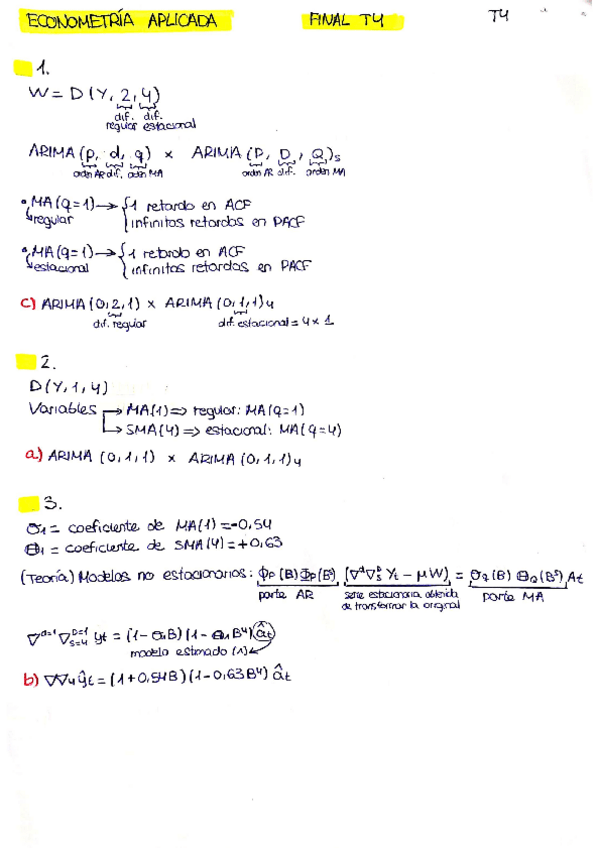 ECONOMETRÍA APLICADA FINAL T4 T4
1.
W = D(Y, 2, 4)
dif. regular dif. estacional
ARIMA (p, d, q) x ARIMA (P, D, Q)s
orden AR dif. orden MA orden AR dif. orden MA
MA(q=1) → 1 retardo en ACF
regular infinitos retardos en PACF
MA(q=1) → 1 retardo en ACF
estacional infinitos retardos en PACF
c) ARIMA (0,2,1) x ARIMA (0,1,1)4
dif. regular dif. estacional = 4x1
2.
D(Y,1,4)
Variables → MA(1) ⇒ regular: MA(q=1)
→ SMA(4) ⇒ estacional: MA(q=4)
a) ARIMA (0,1,1) x ARIMA (0,1,1)4
3.
θ1 = coeficiente de MA(1) = -0,54
Θ1 = coeficiente de SMA(4) = +0,63
(Teoría) Modelos no estacionarios: ϕp(B) Φp(Bˢ) (∇ᵈ∇ˢᴰ Yt - μW) = θq(B) ΘQ(Bˢ) At
parte AR serie estacionaria obtenida de transformar la original parte MA
∇ᵈ⁼¹ ∇ₛ₌₄ᴰ⁼¹ yt = (1 - θ1B)(1 - Θ1B⁴) ât
modelo estimado (1)
b) ∇∇4 ŷt = (1+0,54B)(1-0,63B⁴) ât